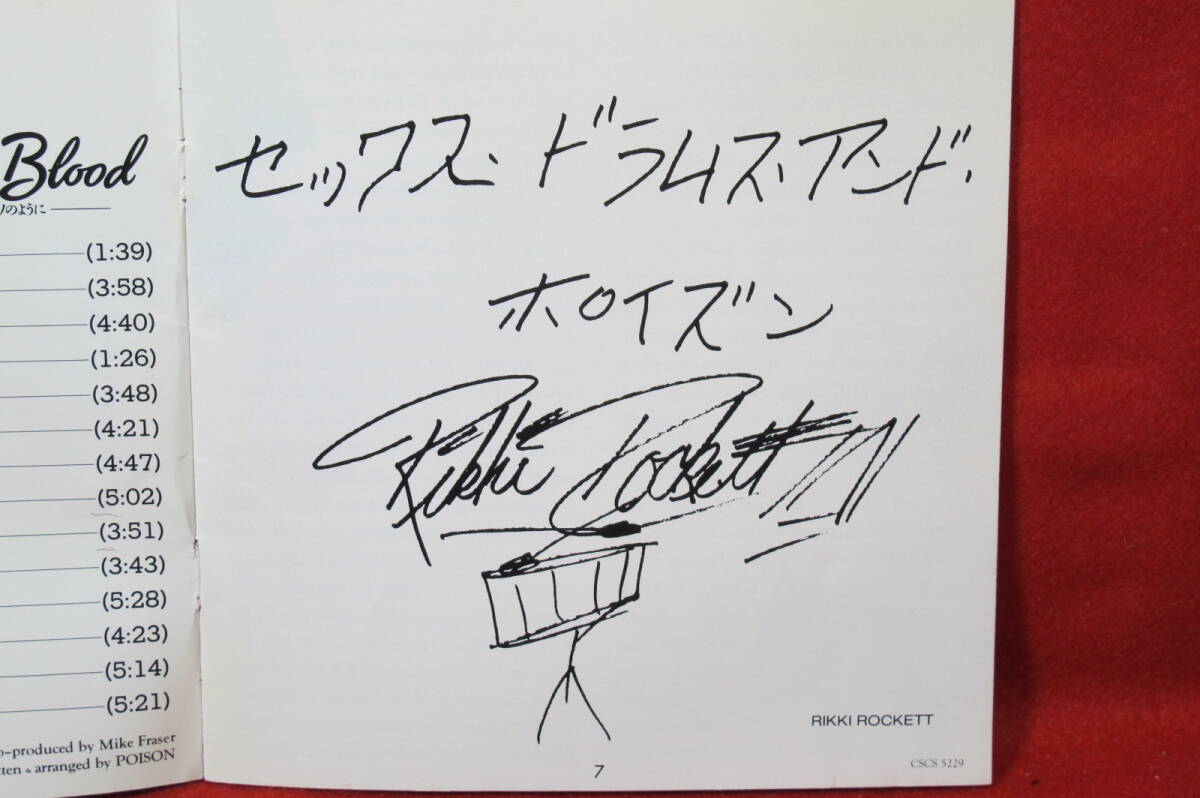 Blood
ソのように
(1:39)
(3:58)
(4:40)
(1:26)
(3:48)
(4:21)
(4:47)
(5:02)
(3:51)
(3:43)
(5:28)
(4:23)
(5:14)
(5:21)
o-produced by Mike Fraser
tten & arranged by POISON
セックス・ドラムス・アンド・
ホロイズン
Rikki Rockett
RIKKI ROCKETT
7
CSCS 5229